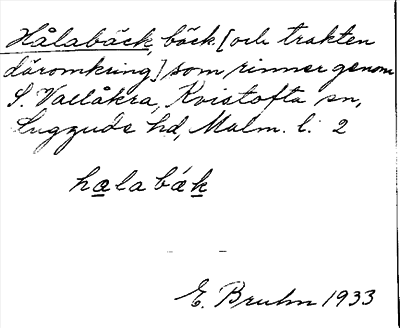 Hålabäck, bäck [och trakten
däromkring] som rinner genom
S. Vallåkra, Kvistofta sn,
Luggude hd, Malm. l. 2
halabäk
E. Bruhn 1933